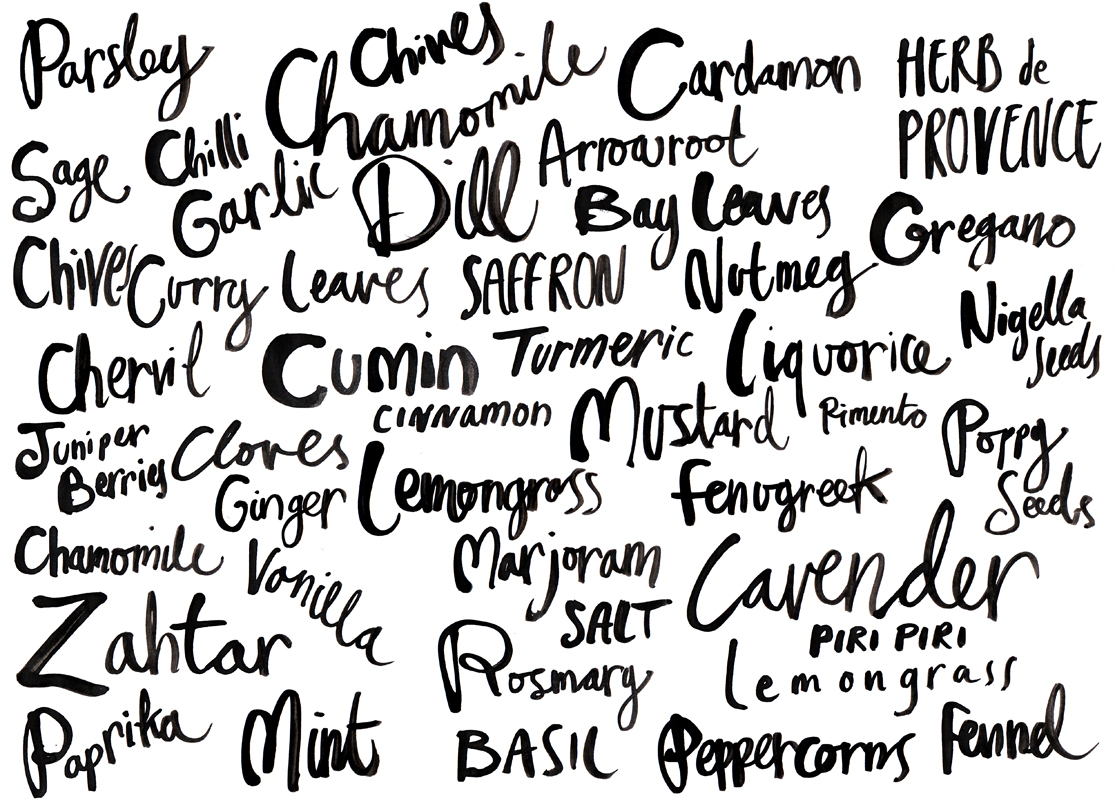 Parsley
Chives
Chamomile
Cardamon
HERB de
PROVENCE
Sage
Chilli
Garlic
Dill
Arrowroot
Bay Leaves
Oregano
Chives
Curry Leaves
SAFFRON
Nutmeg
Nigella
Seeds
Chervil
Cumin
Turmeric
Liquorice
CINNAMON
Mustard
Pimento
Poppy
Seeds
Juniper
Berries
Cloves
Ginger
Lemongrass
Fenugreek
Chamomile
Vanilla
Marjoram
Lavender
SALT
PIRI PIRI
Zahtar
Rosmary
Lemongrass
Paprika
Mint
BASIL
Peppercorns
Fennel